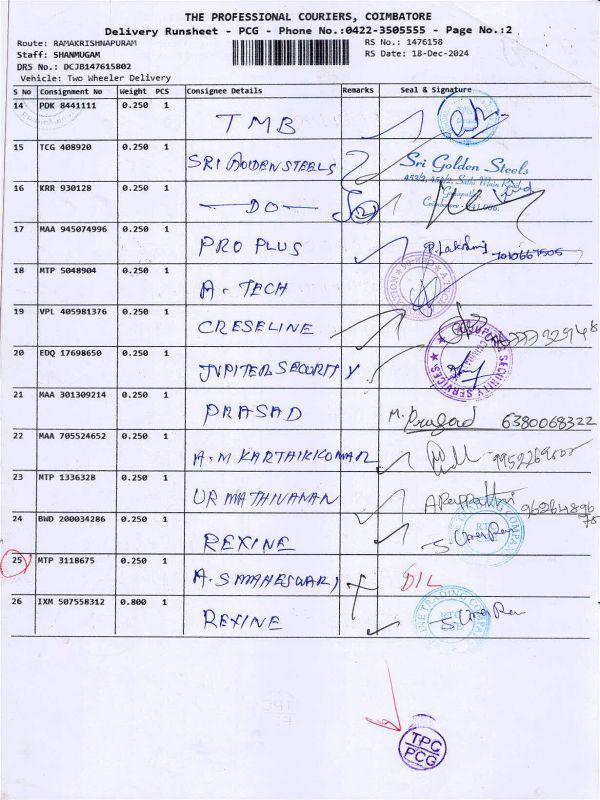 THE PROFESSIONAL COURIERS, COIMBATORE
Delivery Runsheet - PCG - Phone No.:0422-3505555 - Page No.:2
Route: RAMAKRISHNAPURAM RS No.: 1476158
Staff: SHANMUGAM RS Date: 18-Dec-2024
DRS No.: DCJB147615802
Vehicle: Two Wheeler Delivery
S No Consignment No Weight PCS Consignee Details Remarks Seal & Signature
14 PDK 8441111 0.250 1 TMB
15 TCG 408920 0.250 1 SRI GOLDEN STEELS Sri Golden Steels
16 KRR 930128 0.250 1 —DO—
17 MAA 945074996 0.250 1 PRO PLUS P. Lakshmi
18 MTP 5048904 0.250 1 A. TECH
19 VPL 405981376 0.250 1 CRESELINE
20 EDQ 17698650 0.250 1 JUPITER SECURITY SECURITY SERVICES
21 MAA 301309214 0.250 1 PRASAD M. Prasad 6380068322
22 MAA 705524652 0.250 1 A. M KARTHIKKUMAR
23 MTP 1336328 0.250 1 UR MATHIVANAN
24 BWD 200034286 0.250 1 REXINE
25 MTP 3118675 0.250 1 A. S MAHESWARI D/L
26 IXM 507558312 0.800 1 REXINE
TPC
PCG